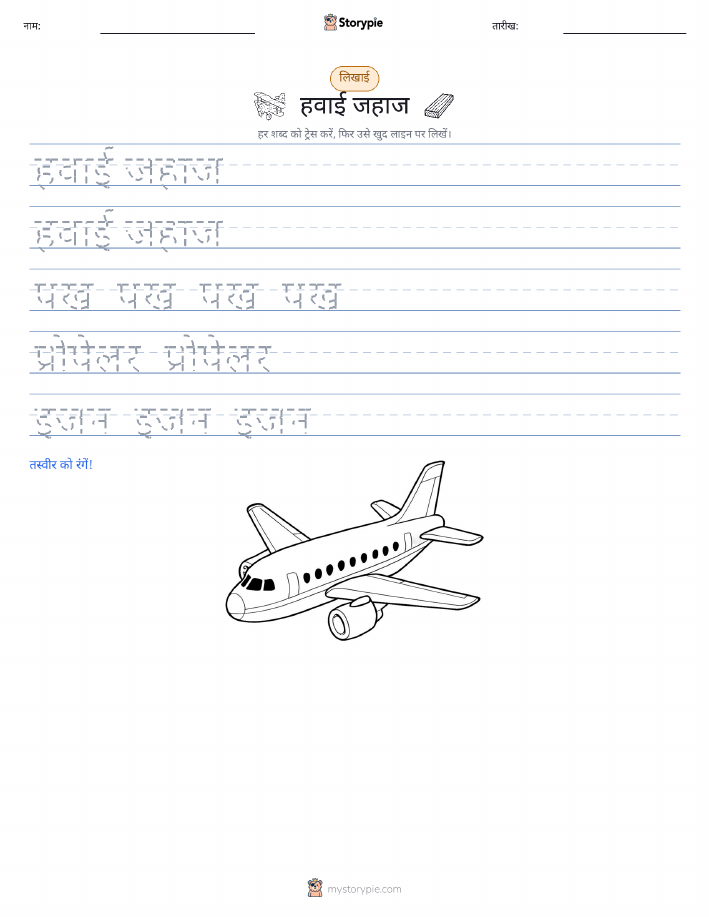 नाम:
Storypie
तारीख:
लिखाई
हवाई जहाज
हर शब्द को ट्रेस करें, फिर उसे खुद लाइन पर लिखें।
हवाई जहाज
हवाई जहाज
पख पख पख पख
प्रोपेलर प्रोपेलर
इजन इजन इजन
तस्वीर को रंगें!
mystorypie.com